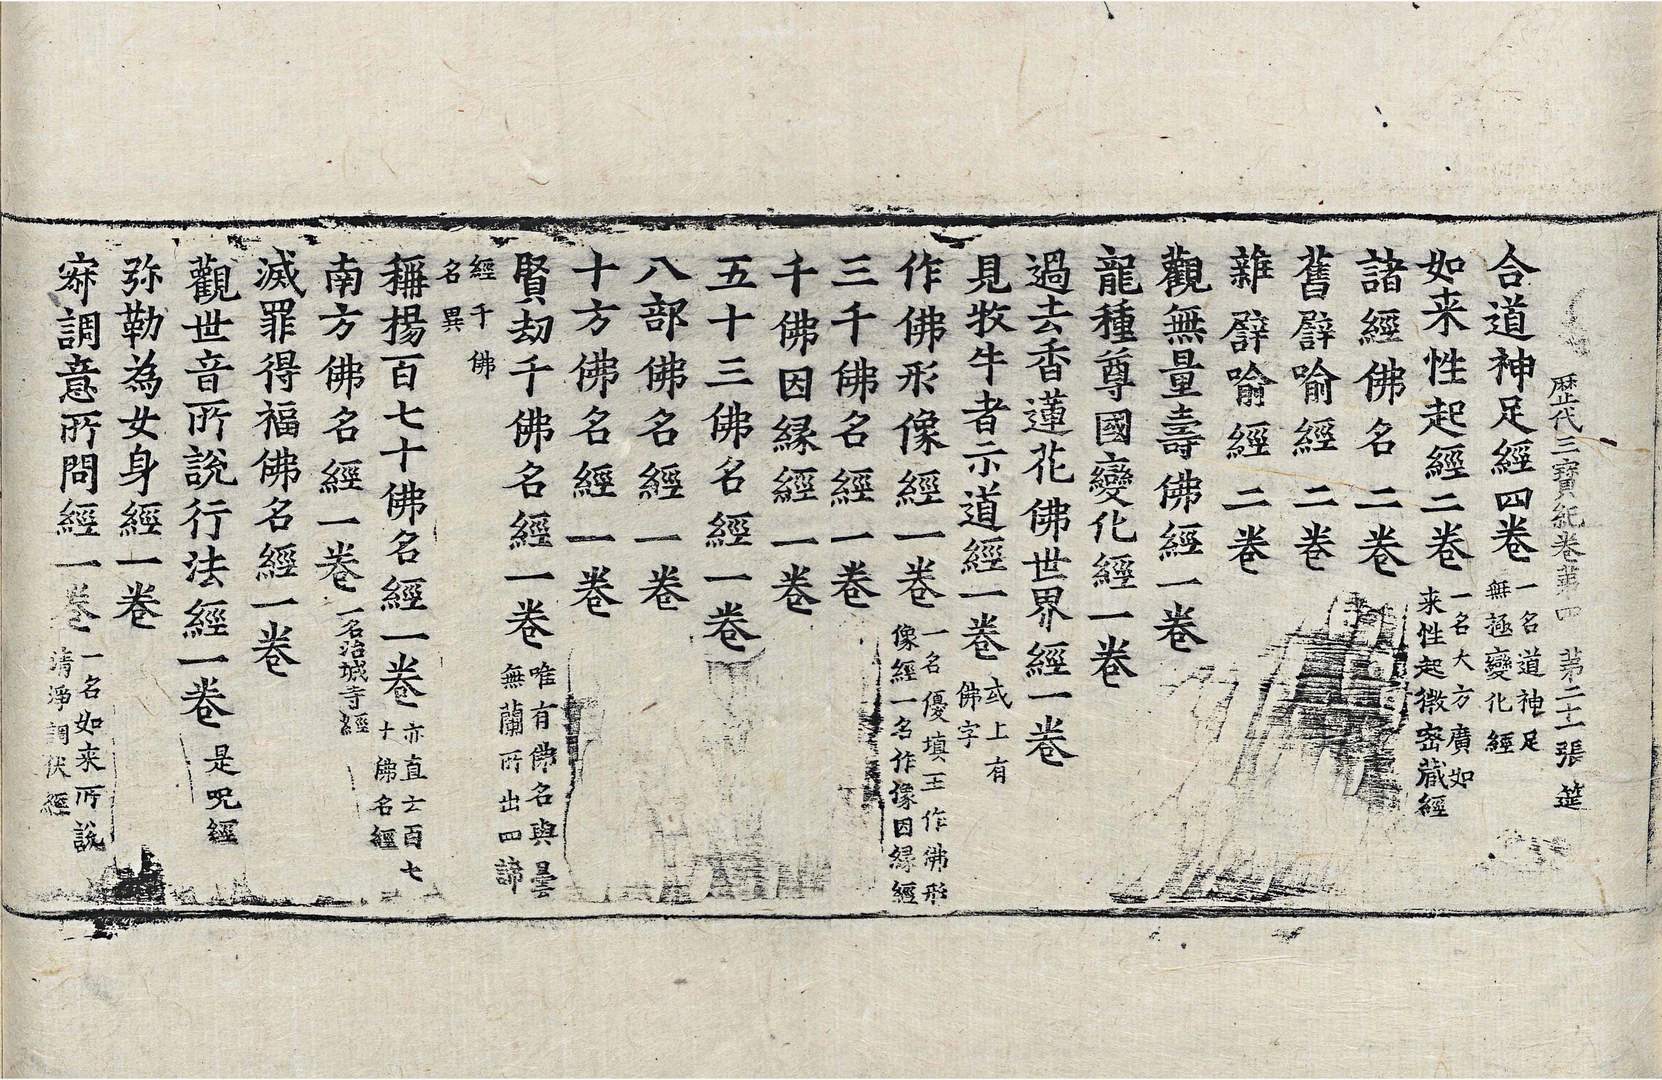 歷代三寶紀卷第四 第二十一張 筵
合道神足經四卷 一名道神足無極變化經
如来性起經二卷 一名大方廣如来性起微密藏經
諸經佛名二卷
舊譬喻經二卷
雜譬喻經二卷
觀無量壽佛經一卷
龍種尊國變化經一卷
過去香蓮花佛世界經一卷
見牧牛者示道經一卷 或上有佛字
作佛形像經一卷 一名優填王作佛形像經一名作像因縁經
三千佛名經一卷
千佛因縁經一卷
五十三佛名經一卷
八部佛名經一卷
十方佛名經一卷
賢劫千佛名經一卷 唯有佛名與曇無蘭所出四諦
經千佛名異
稱揚百七十佛名經一卷 亦直云百七十佛名經
南方佛名經一卷 一名治城寺經
滅罪得福佛名經一卷
觀世音所說行法經一卷 是呪經
弥勒為女身經一卷
寂調意所問經一卷 一名如来所說清淨調伏經